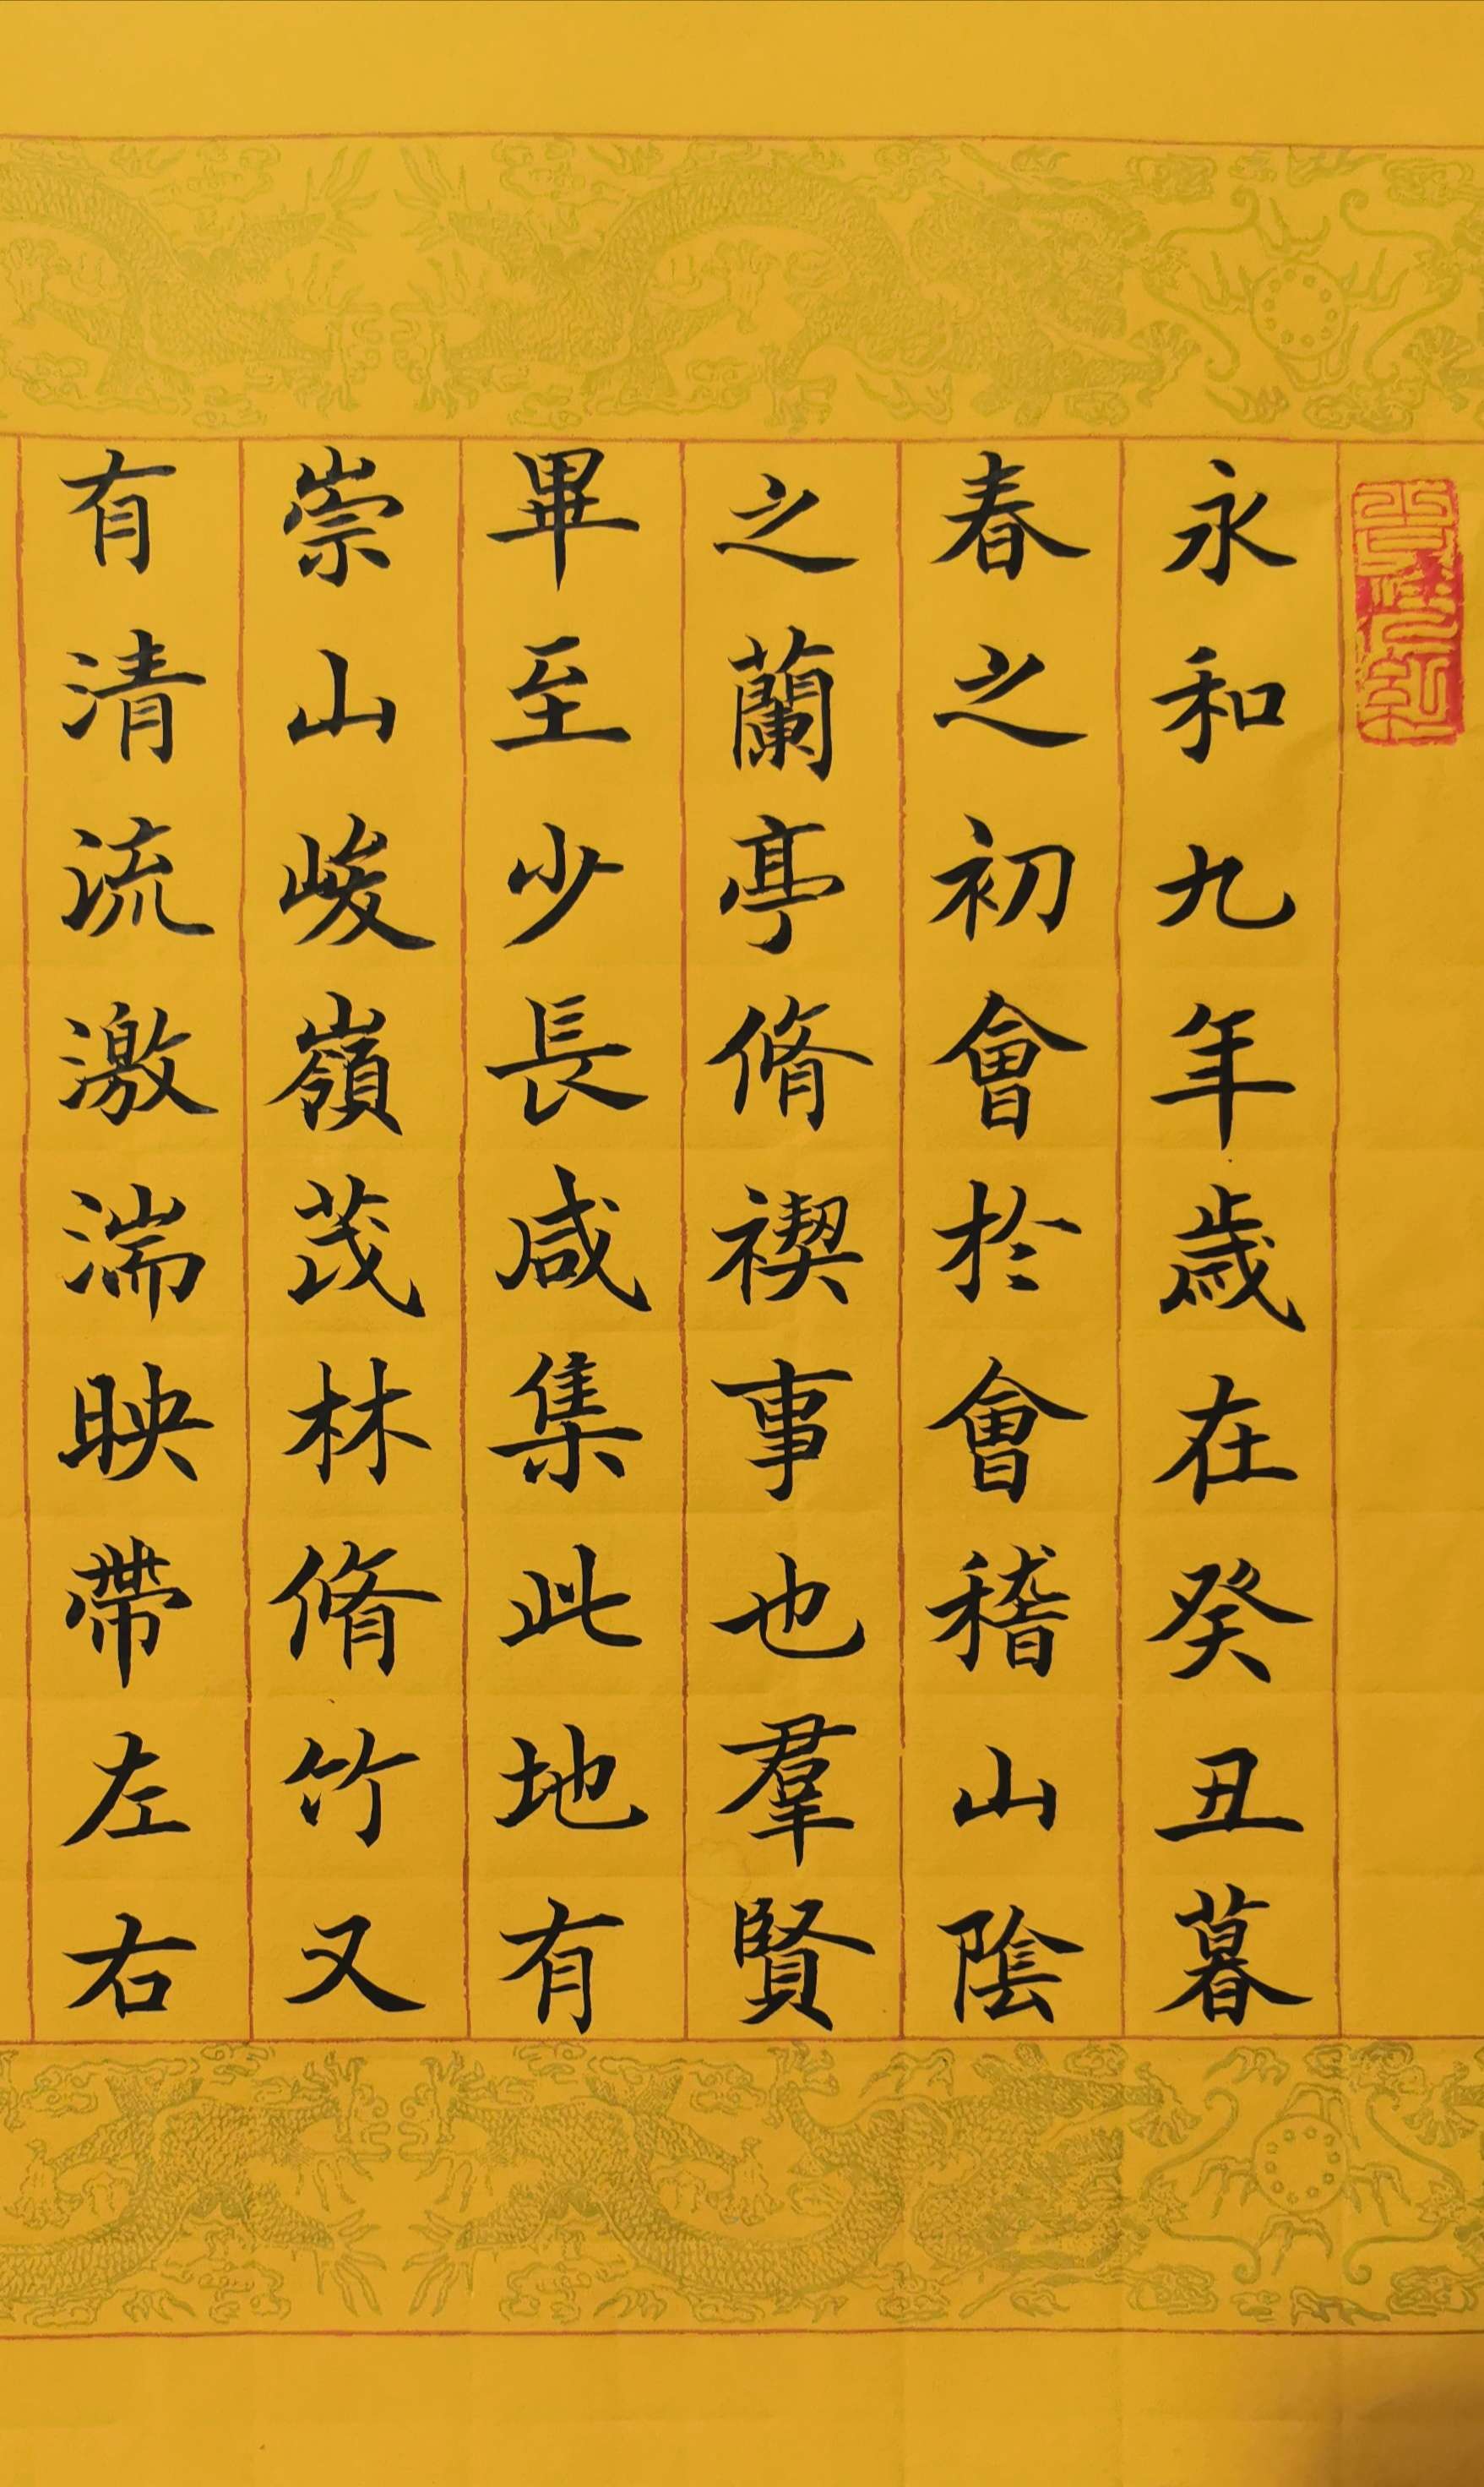 永和九年歲在癸丑暮
春之初會於會稽山陰
之蘭亭脩禊事也羣賢
畢至少長咸集此地有
崇山峻嶺茂林脩竹又
有清流激湍映帶左右